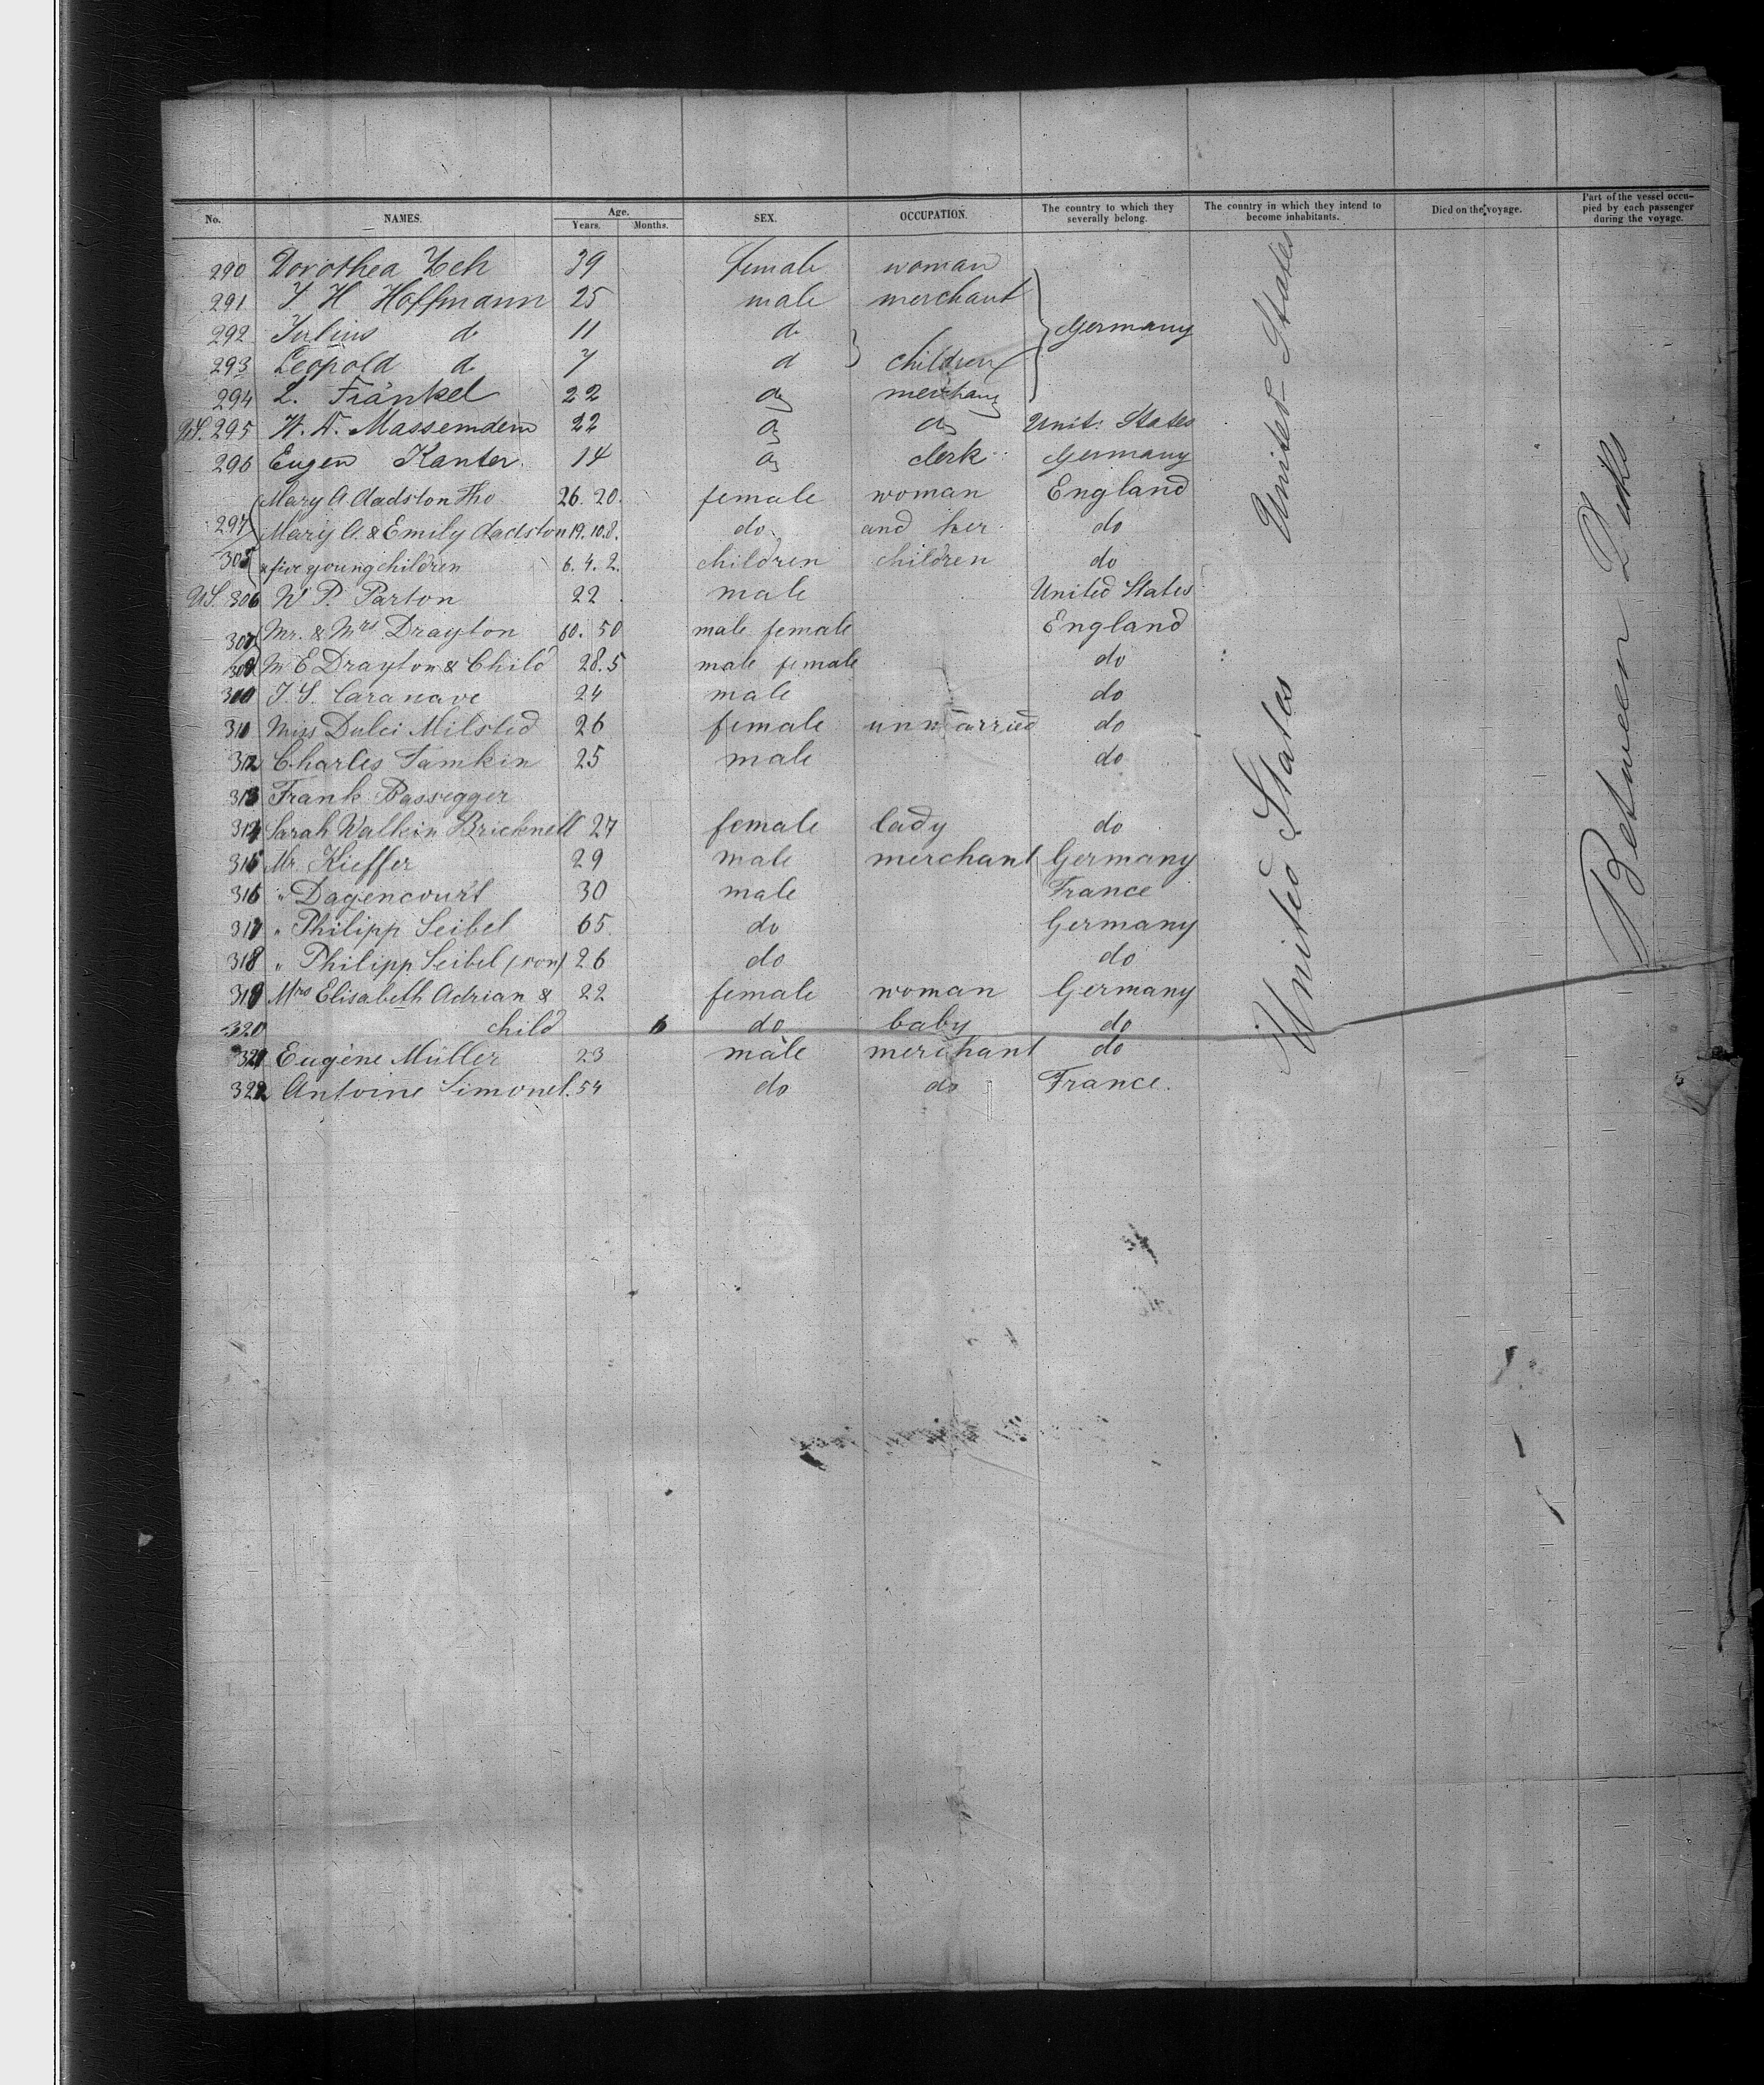 No. NAMES. Age. Years. Months. SEX. OCCUPATION. The country to which they severally belong. The country in which they intend to become inhabitants. Died on the voyage. Part of the vessel occupied by each passenger during the voyage.
290 Dorothea Zeh 39 female woman
291 J H Hoffmann 25 male merchant
292 Julius do 11 do
293 Leopold do 7 do children Germany
294 L. Fränkel 22 do merchant
US. 295 22 do do Unit: States
296 Eugen Kanter. 14 do clerk Germany
Mary A. 26. 20. female woman England
297 Mary A. & Emily 19. 10. 8. do and her do
305 & five young children 6. 4. 2. children children do
US. 306 W P. Parton 22 male United States
307 Mr. & Mrs Drayton 60. 50 male female England
309 M E Drayton & Child 28. 5 male female do
310 24 male do
311 Miss Dulci Milsted 26 female unmarried do
312 Charles Tamkin 25 male do
313 Frank Passegger
314 Sarah Walkin Bricknell 27 female lady do
315 Mr. Kieffer 29 male merchant Germany
316 " Dagencourt 30 male France
317 " Philipp Seibel 65. do Germany
318 " Philipp Seibel (son) 26 do do
319 Mrs Elisabeth Adrian & 22 female woman Germany
320 child 6 do baby do
321 Eugène Müller 23 male merchant do
322 Antoine Simonel. 54 do do France.
United States
United States
Between Decks